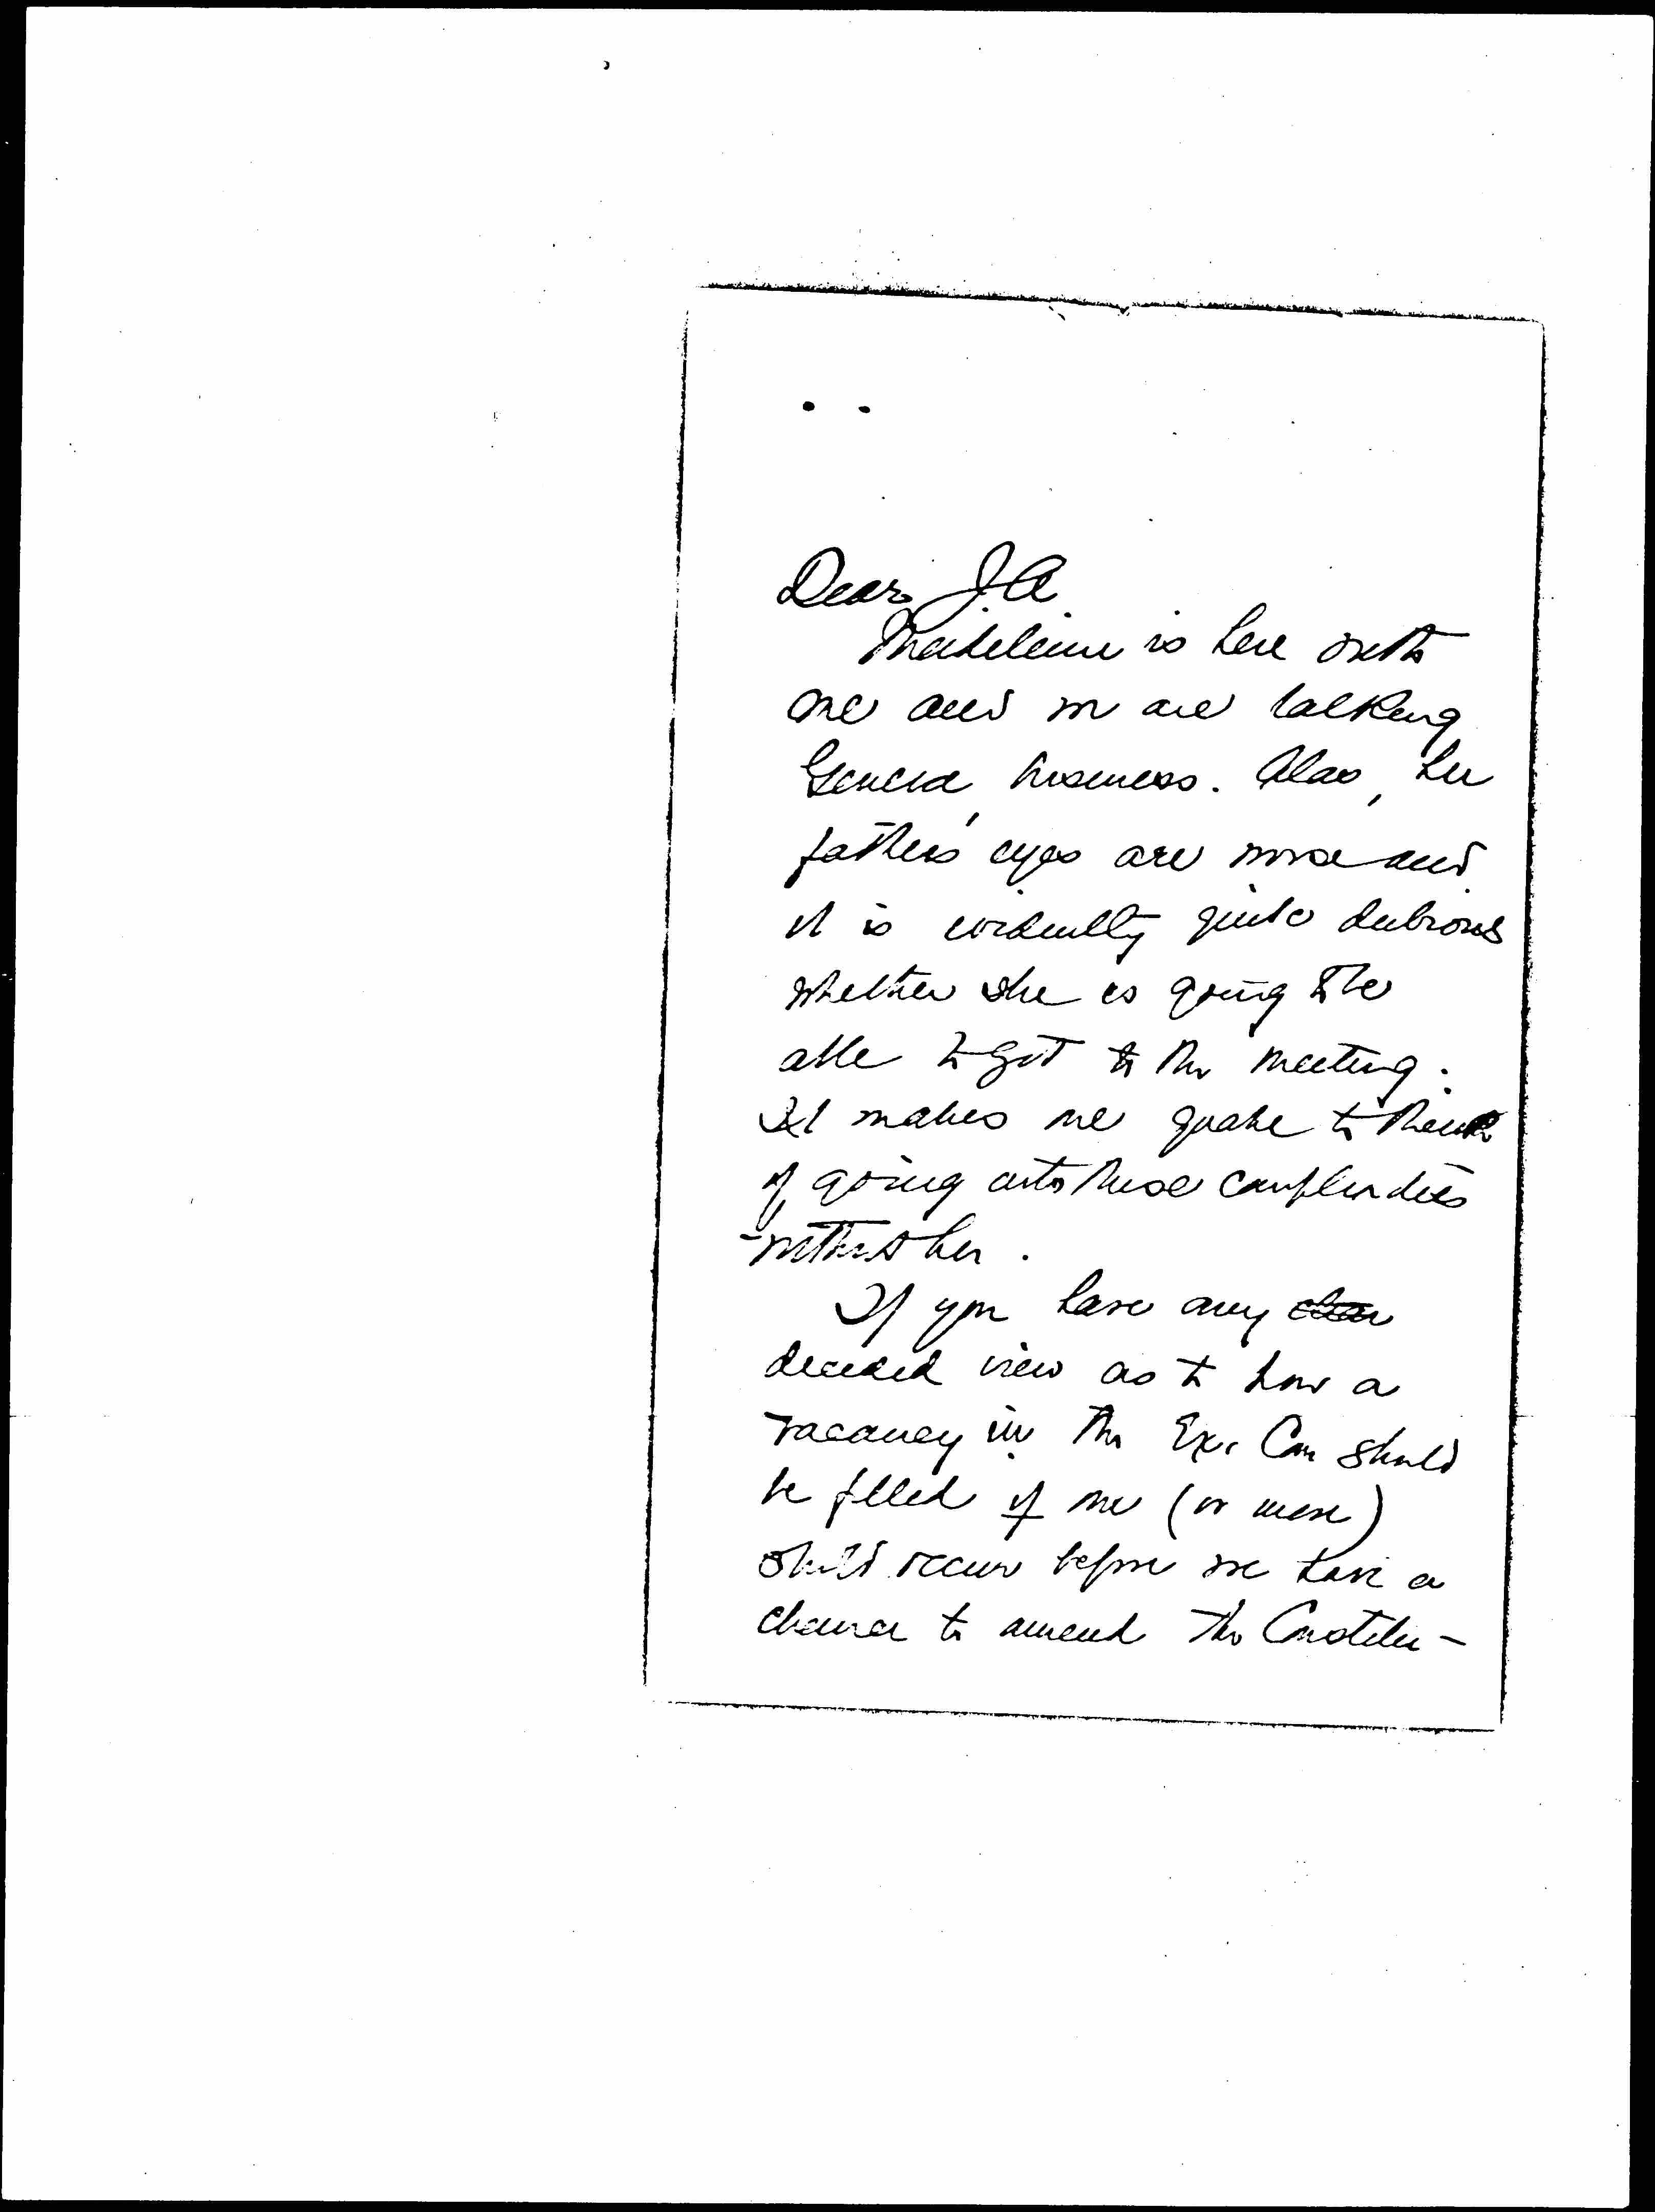 Dear J.A.
Madeleine is here with
me and we are talking
Geneva business. Alas, her
father's eyes are worse and
it is evidently quite dubious
whether she is going to be
able to get to the meeting.
It makes me quake to think
of going into these complexities
without her.
If you have any clear
decided view as to how a
vacancy in the Ex. Com should
be filled if one (or more)
should occur before we have a
chance to amend the Constitu-